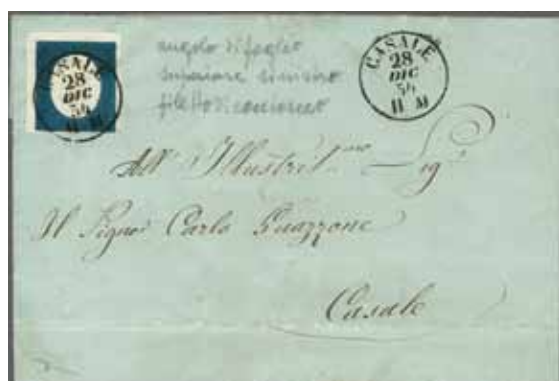 CASALE
28
DIC
54
11 M
angolo di foglio
superiore sinistro
filetto di contorno
CASALE
28
DIC
54
11 M
All' Illustrīs.mo Sig.r
Il Signor Carlo Guazzone
Casale